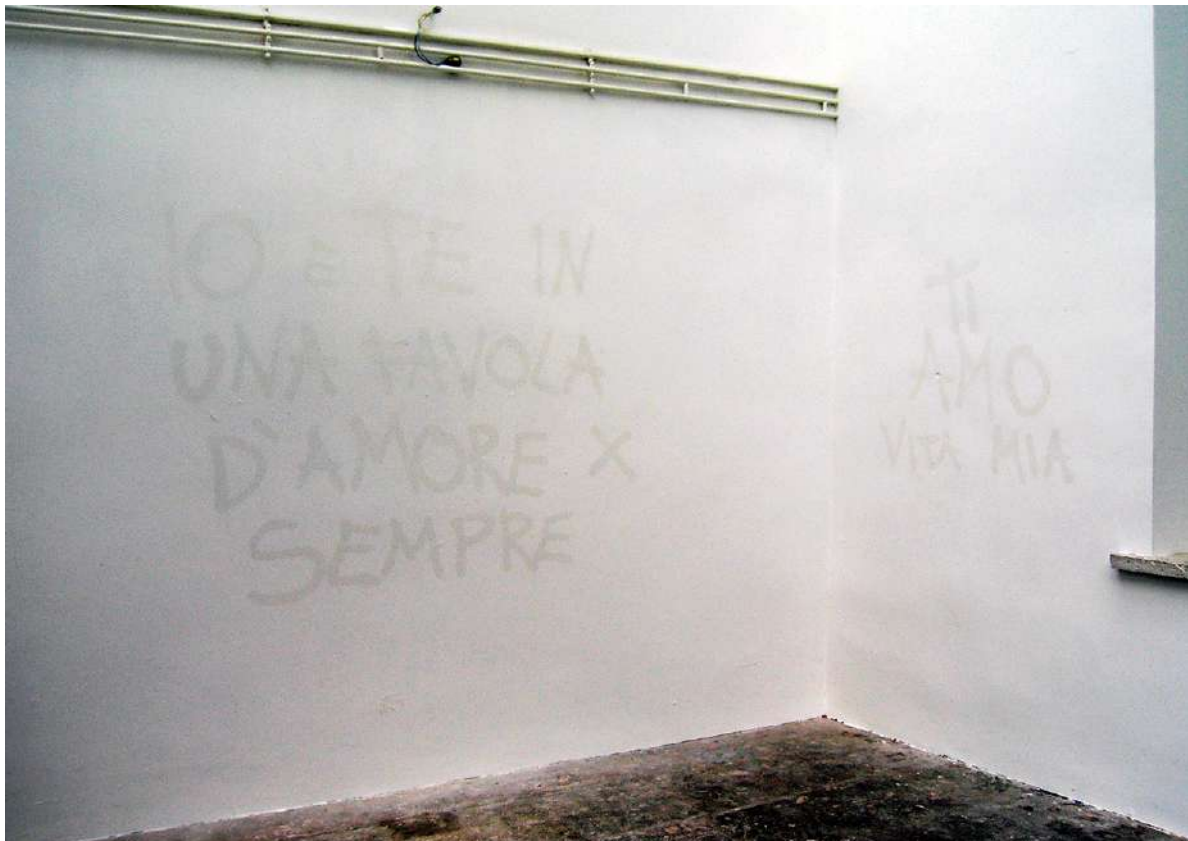 IO E TE IN
UNA FAVOLA
D'AMORE X
SEMPRE
TI
AMO
VITA MIA